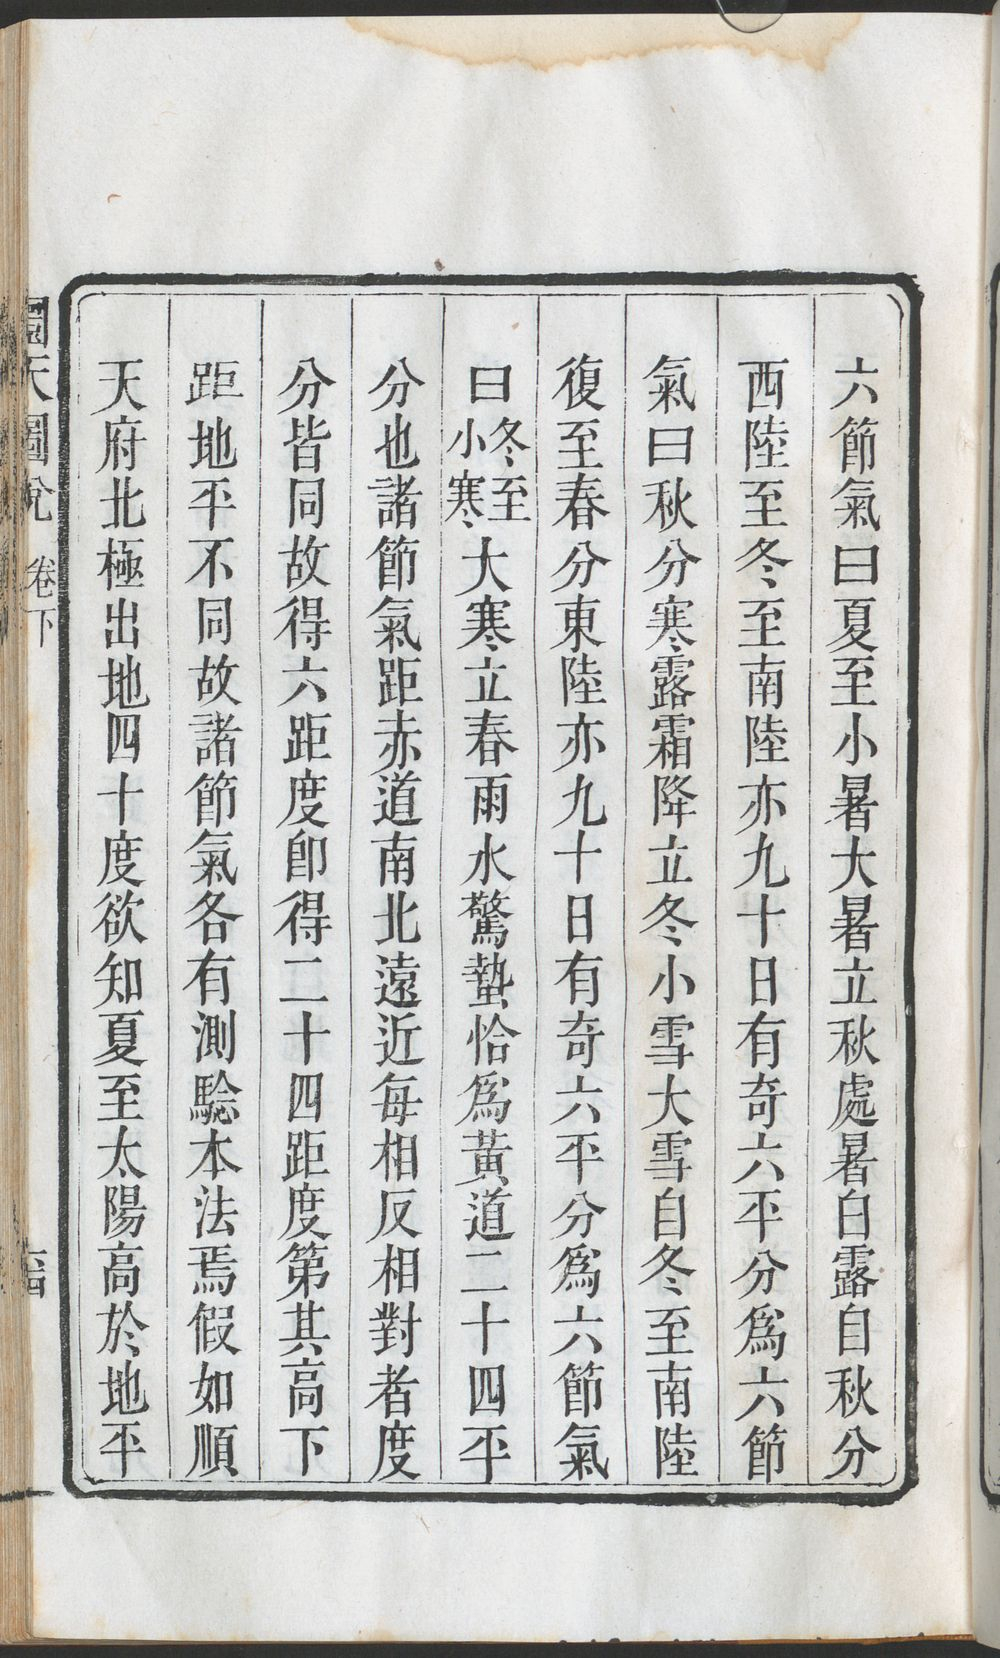 六節氣曰夏至小暑大暑立秋處暑白露自秋分
西陸至冬至南陸亦九十日有奇六平分爲六節
氣曰秋分寒露霜降立冬小雪大雪自冬至南陸
復至春分東陸亦九十日有奇六平分爲六節氣
曰冬至小寒大寒立春雨水驚蟄恰爲黃道二十四平
分也諸節氣距赤道南北遠近每相反相對者度
分皆同故得六距度卽得二十四距度第其高下
距地平不同故諸節氣各有測驗本法焉假如順
天府北極出地四十度欲知夏至太陽高於地平
圜天圖說 卷下